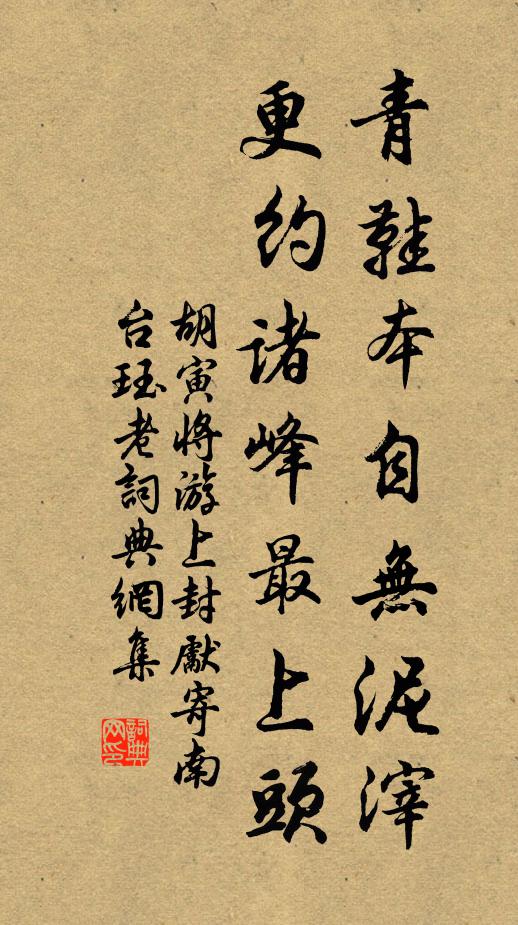 青鞋本自無泥滓
更約諸峰最上頭
胡寅將游上封獻寄南
台珏老詞典網集
詞典网印